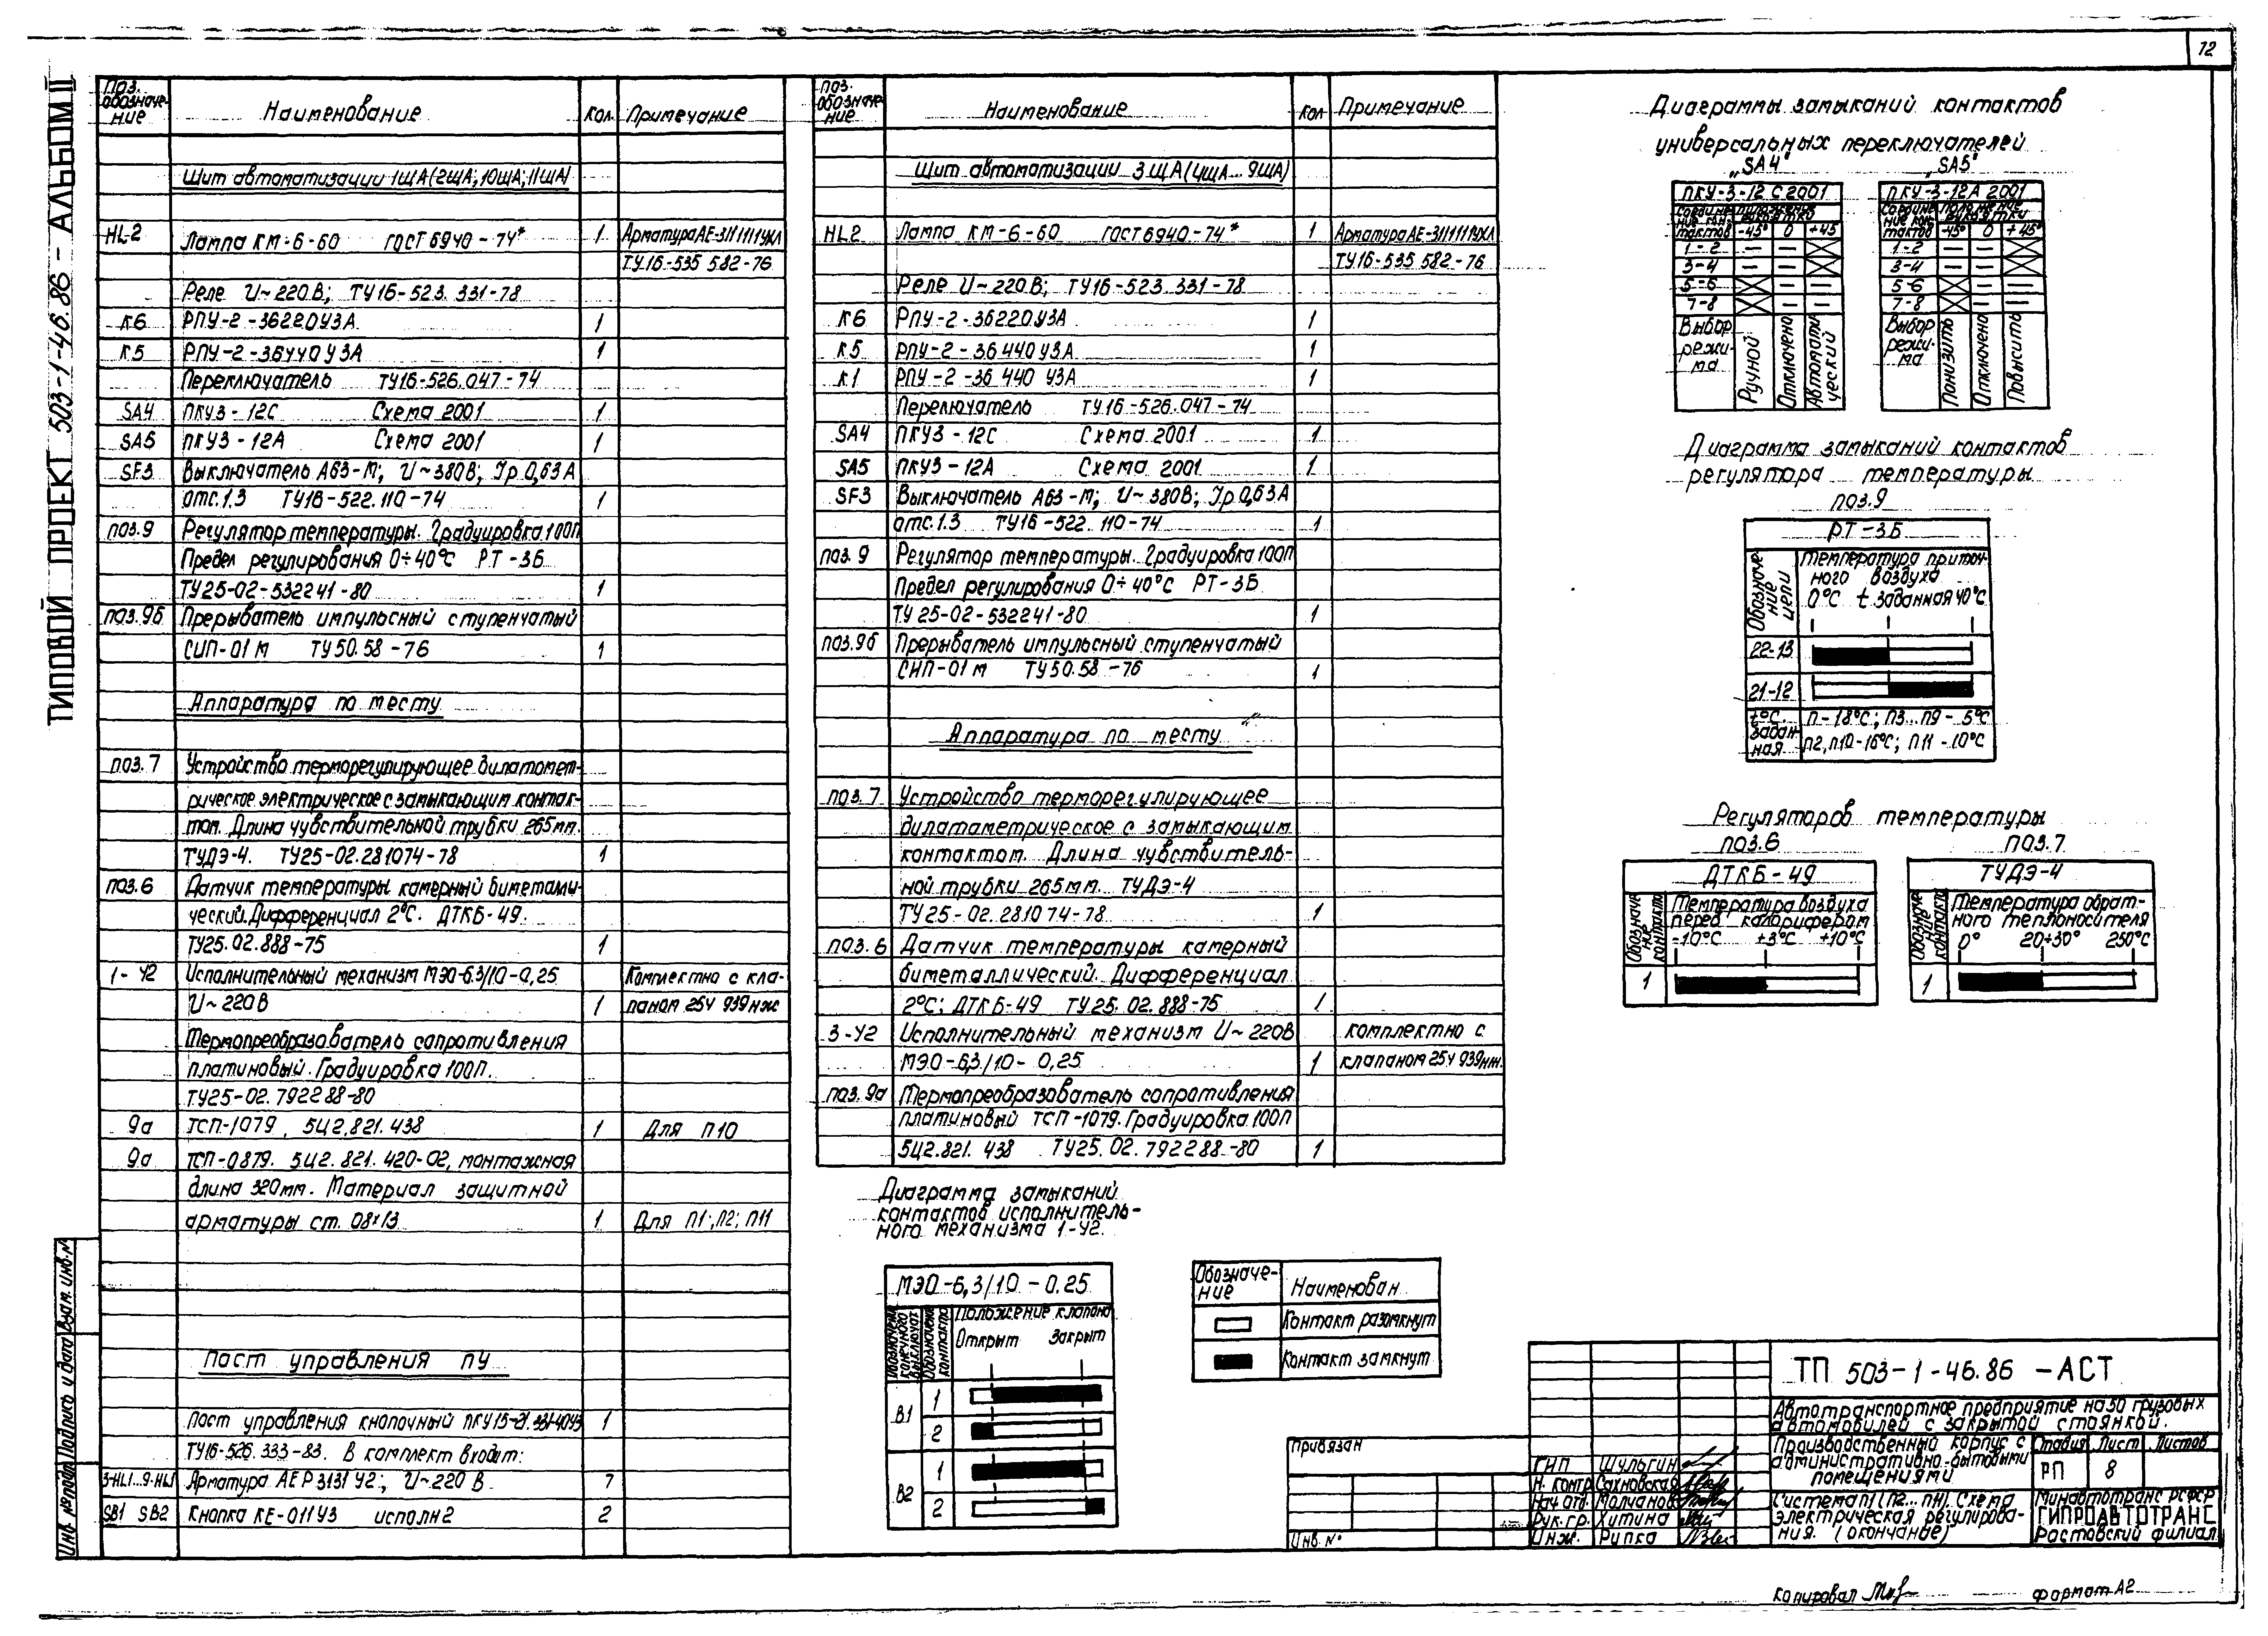 12
ТИПОВОЙ ПРОЕКТ 503-1-46.86 - АЛЬБОМ II
Поз. обозначе-ние | Наименование | Кол | Примечание
Щит автоматизации 1ЩА (2ЩА; 10ЩА; 11ЩА)
HL2 | Лампа КМ-6-60 ГОСТ 6940-74* | 1 | Арматура АЕ-311111УХЛ
ТУ16-535 582-76
Реле U~220В; ТУ16-523.331-78
К6 | РПУ-2-36220У3А | 1
К5 | РПУ-2-36440У3А | 1
Переключатель ТУ16-526.047-74
SA4 | ПКУ3-12С Схема 2001 | 1
SA5 | ПКУ3-12А Схема 2001 | 1
SF3 | Выключатель А63-М; U~380В; Iр 0,63А
отс.1.3 ТУ16-522.110-74 | 1
поз.9 | Регулятор температуры. Градуировка 100П
Предел регулирования 0÷40°С РТ-3Б
ТУ25-02-532241-80 | 1
поз.9б | Прерыватель импульсный ступенчатый
СИП-01М ТУ50.58-76 | 1
Аппаратура по месту
поз.7 | Устройство терморегулирующее дилатомет-
рическое электрическое с замыкающим контак-
том. Длина чувствительной трубки 265мм.
ТУДЭ-4. ТУ25-02.281074-78 | 1
поз.6 | Датчик температуры камерный биметалли-
ческий. Дифференциал 2°С. ДТКБ-49.
ТУ25.02.888-75 | 1
1-У2 | Исполнительный механизм МЭО-6.3/10-0,25 | Комплектно с кла-
U~220В | 1 | паном 25ч 939нж
Термопреобразователь сопротивления
платиновый. Градуировка 100П.
ТУ25-02.792288-80
9а | ТСП-1079, 5Ц2.821.438 | 1 | Для П10
9а | ТСП-0879. 5Ц2.821.420-02, монтажная
длина 320мм. Материал защитной
арматуры ст. 08х13 | 1 | Для П1; П2; П11
Пост управления ПУ
Пост управления кнопочный ПКУ15-21.331-40У3 | 1
ТУ16-526.333-83. В комплект входит:
3-HL1...9-HL1 | Арматура АЕР3131У2; U~220 В | 7
SB1 SB2 | Кнопка КЕ-011У3 исполн 2 | 2
Поз. обозначе-ние | Наименование | Кол | Примечание
Щит автоматизации 3ЩА (4ЩА...9ЩА)
HL2 | Лампа КМ-6-60 ГОСТ 6940-74* | 1 | Арматура АЕ-311111УХЛ
ТУ16-535 582-76
Реле U~220В; ТУ16-523.331-78
К6 | РПУ-2-36220У3А | 1
К5 | РПУ-2-36440У3А | 1
К1 | РПУ-2-36 440 У3А | 1
Переключатель ТУ16-526.047-74
SA4 | ПКУ3-12С Схема 2001 | 1
SA5 | ПКУ3-12А Схема 2001 | 1
SF3 | Выключатель А63-М; U~380В; Iр 0,63А
отс.1.3 ТУ16-522.110-74 | 1
поз.9 | Регулятор температуры. Градуировка 100П
Предел регулирования 0÷40°С РТ-3Б
ТУ 25-02-532241-80 | 1
поз.9б | Прерыватель импульсный ступенчатый
СИП-01М ТУ50.58-76 | 1
Аппаратура по месту
поз.7 | Устройство терморегулирующее
дилатометрическое с замыкающим
контактом. Длина чувствитель-
ной трубки 265мм. ТУДЭ-4
ТУ25-02.281074-78 | 1
поз.6 | Датчик температуры камерный
биметаллический. Дифференциал
2°С; ДТКБ-49 ТУ25.02.888-75 | 1
3-У2 | Исполнительный механизм U~220В | комплектно с
МЭО-6,3/10-0,25 | 1 | клапаном 25ч 939нж.
поз.9а | Термопреобразователь сопротивления
платиновый ТСП-1079. Градуировка 100П
5Ц2.821.438 ТУ25.02.792288-80 | 1
Диаграмма замыканий
контактов исполнитель-
ного механизма 1-У2.
МЭО-6,3/10-0.25
Обозначение конечного выключат. | Обозначение контакта | Положение клапана
Открыт Закрыт
В1 | 1
2
В2 | 1
2
Обозначе-ние | Наименован
Контакт разомкнут
Контакт замкнут
Диаграммы замыканий контактов
универсальных переключателей
„SA4" „SA5"
ПКУ-3-12С2001
Соедине-ние кон-тактов | положение рукоятки
-45° 0 +45
1-2
3-4
5-6
7-8
Выбор режи-ма | Ручной | Отключено | Автомати-ческий
ПКУ-3-12А 2001
Соедине-ние кон-тактов | положение рукоятки
-45° 0 +45°
1-2
3-4
5-6
7-8
Выбор режи-ма | Понизить | Отключено | Повысить
Диаграмма замыканий контактов
регулятора температуры
поз.9
РТ-3Б
Обозначе-ние цепи | Температура приточ-
ного воздуха
0°С t заданная 40°С
22-13
21-12
t°С задан-ная | П-18°С; П3...П9-5°С
П2, П10-16°С; П11-10°С
Регуляторов температуры
поз.6 поз.7
ДТКБ-49
Обозначе-ние контакта | Температура воздуха
перед калорифером
-10°С +3°С +10°С
1
ТУДЭ-4
Обозначе-ние контакта | Температура обрат-
ного теплоносителя
0° 20÷30° 250°С
1
ТП 503-1-46.86 -АСТ
Автотранспортное предприятие на 50 грузовых
автомобилей с закрытой стоянкой.
Производственный корпус с
административно-бытовыми
помещениями
Стадия | Лист | Листов
РП | 8
Система П1 (П2...П11). Схема
электрическая регулирова-
ния. (окончание)
Минавтотранс РСФСР
ГИПРОАВТОТРАНС
Ростовский филиал
ГИП Шульгин
Н. контр. Сахновская
Нач. отд. Молчанов
Рук. гр. Хитина
Инж. Рипка
Привязан
Инв. №
Инв. № подл. Подпись и дата Взам. инв. №
Копировал
формат А2